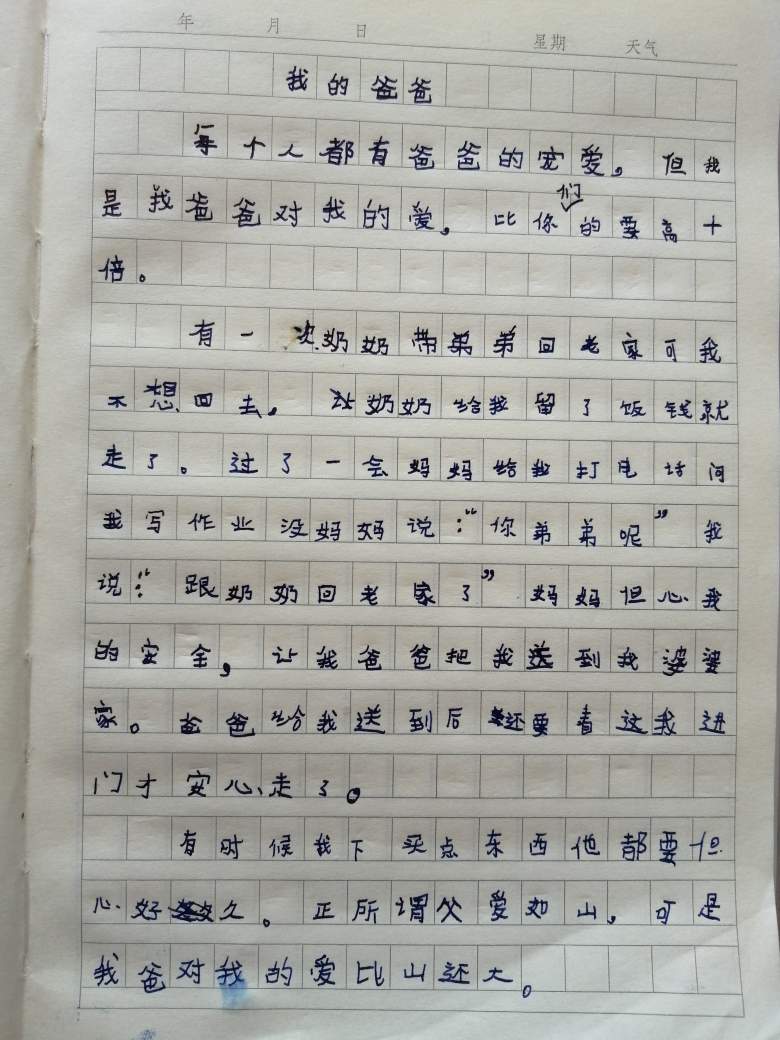 年 月 日 星期 天气
我的爸爸
每个人都有爸爸的宠爱。但我
是我爸爸对我的爱。比你们的要高十
倍。
有一次奶奶带弟弟回老家可我
不想回去。奶奶给我留了饭钱就
走了。过了一会妈妈给我打电话问
我写作业没妈妈说:“你弟弟呢”我
说:“跟奶奶回老家了”妈妈但心我
的安全,让我爸爸把我送到我婆婆
家。爸爸给我送到后还要看这我进
门才安心走了。
有时候我下买点东西他都要但
心好久。正所谓父爱如山,可是
我爸对我的爱比山还大。